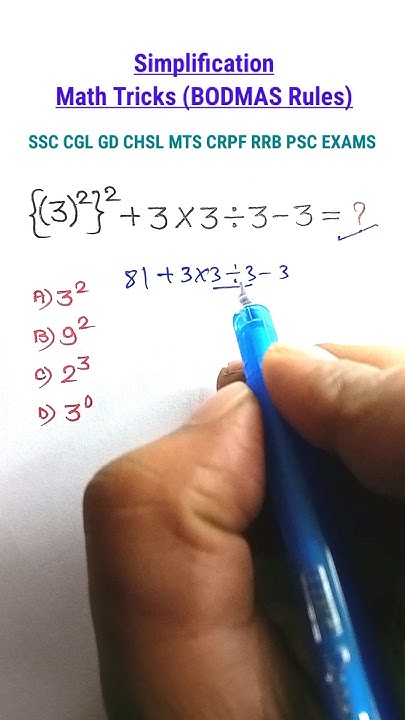 Simplification
Math Tricks (BODMAS Rules)
SSC CGL GD CHSL MTS CRPF RRB PSC EXAMS
{(3)²}² + 3 × 3 ÷ 3 - 3 = ?
81 + 3 × 3 ÷ 3 - 3
A) 3²
B) 9²
C) 2³
D) 3⁰